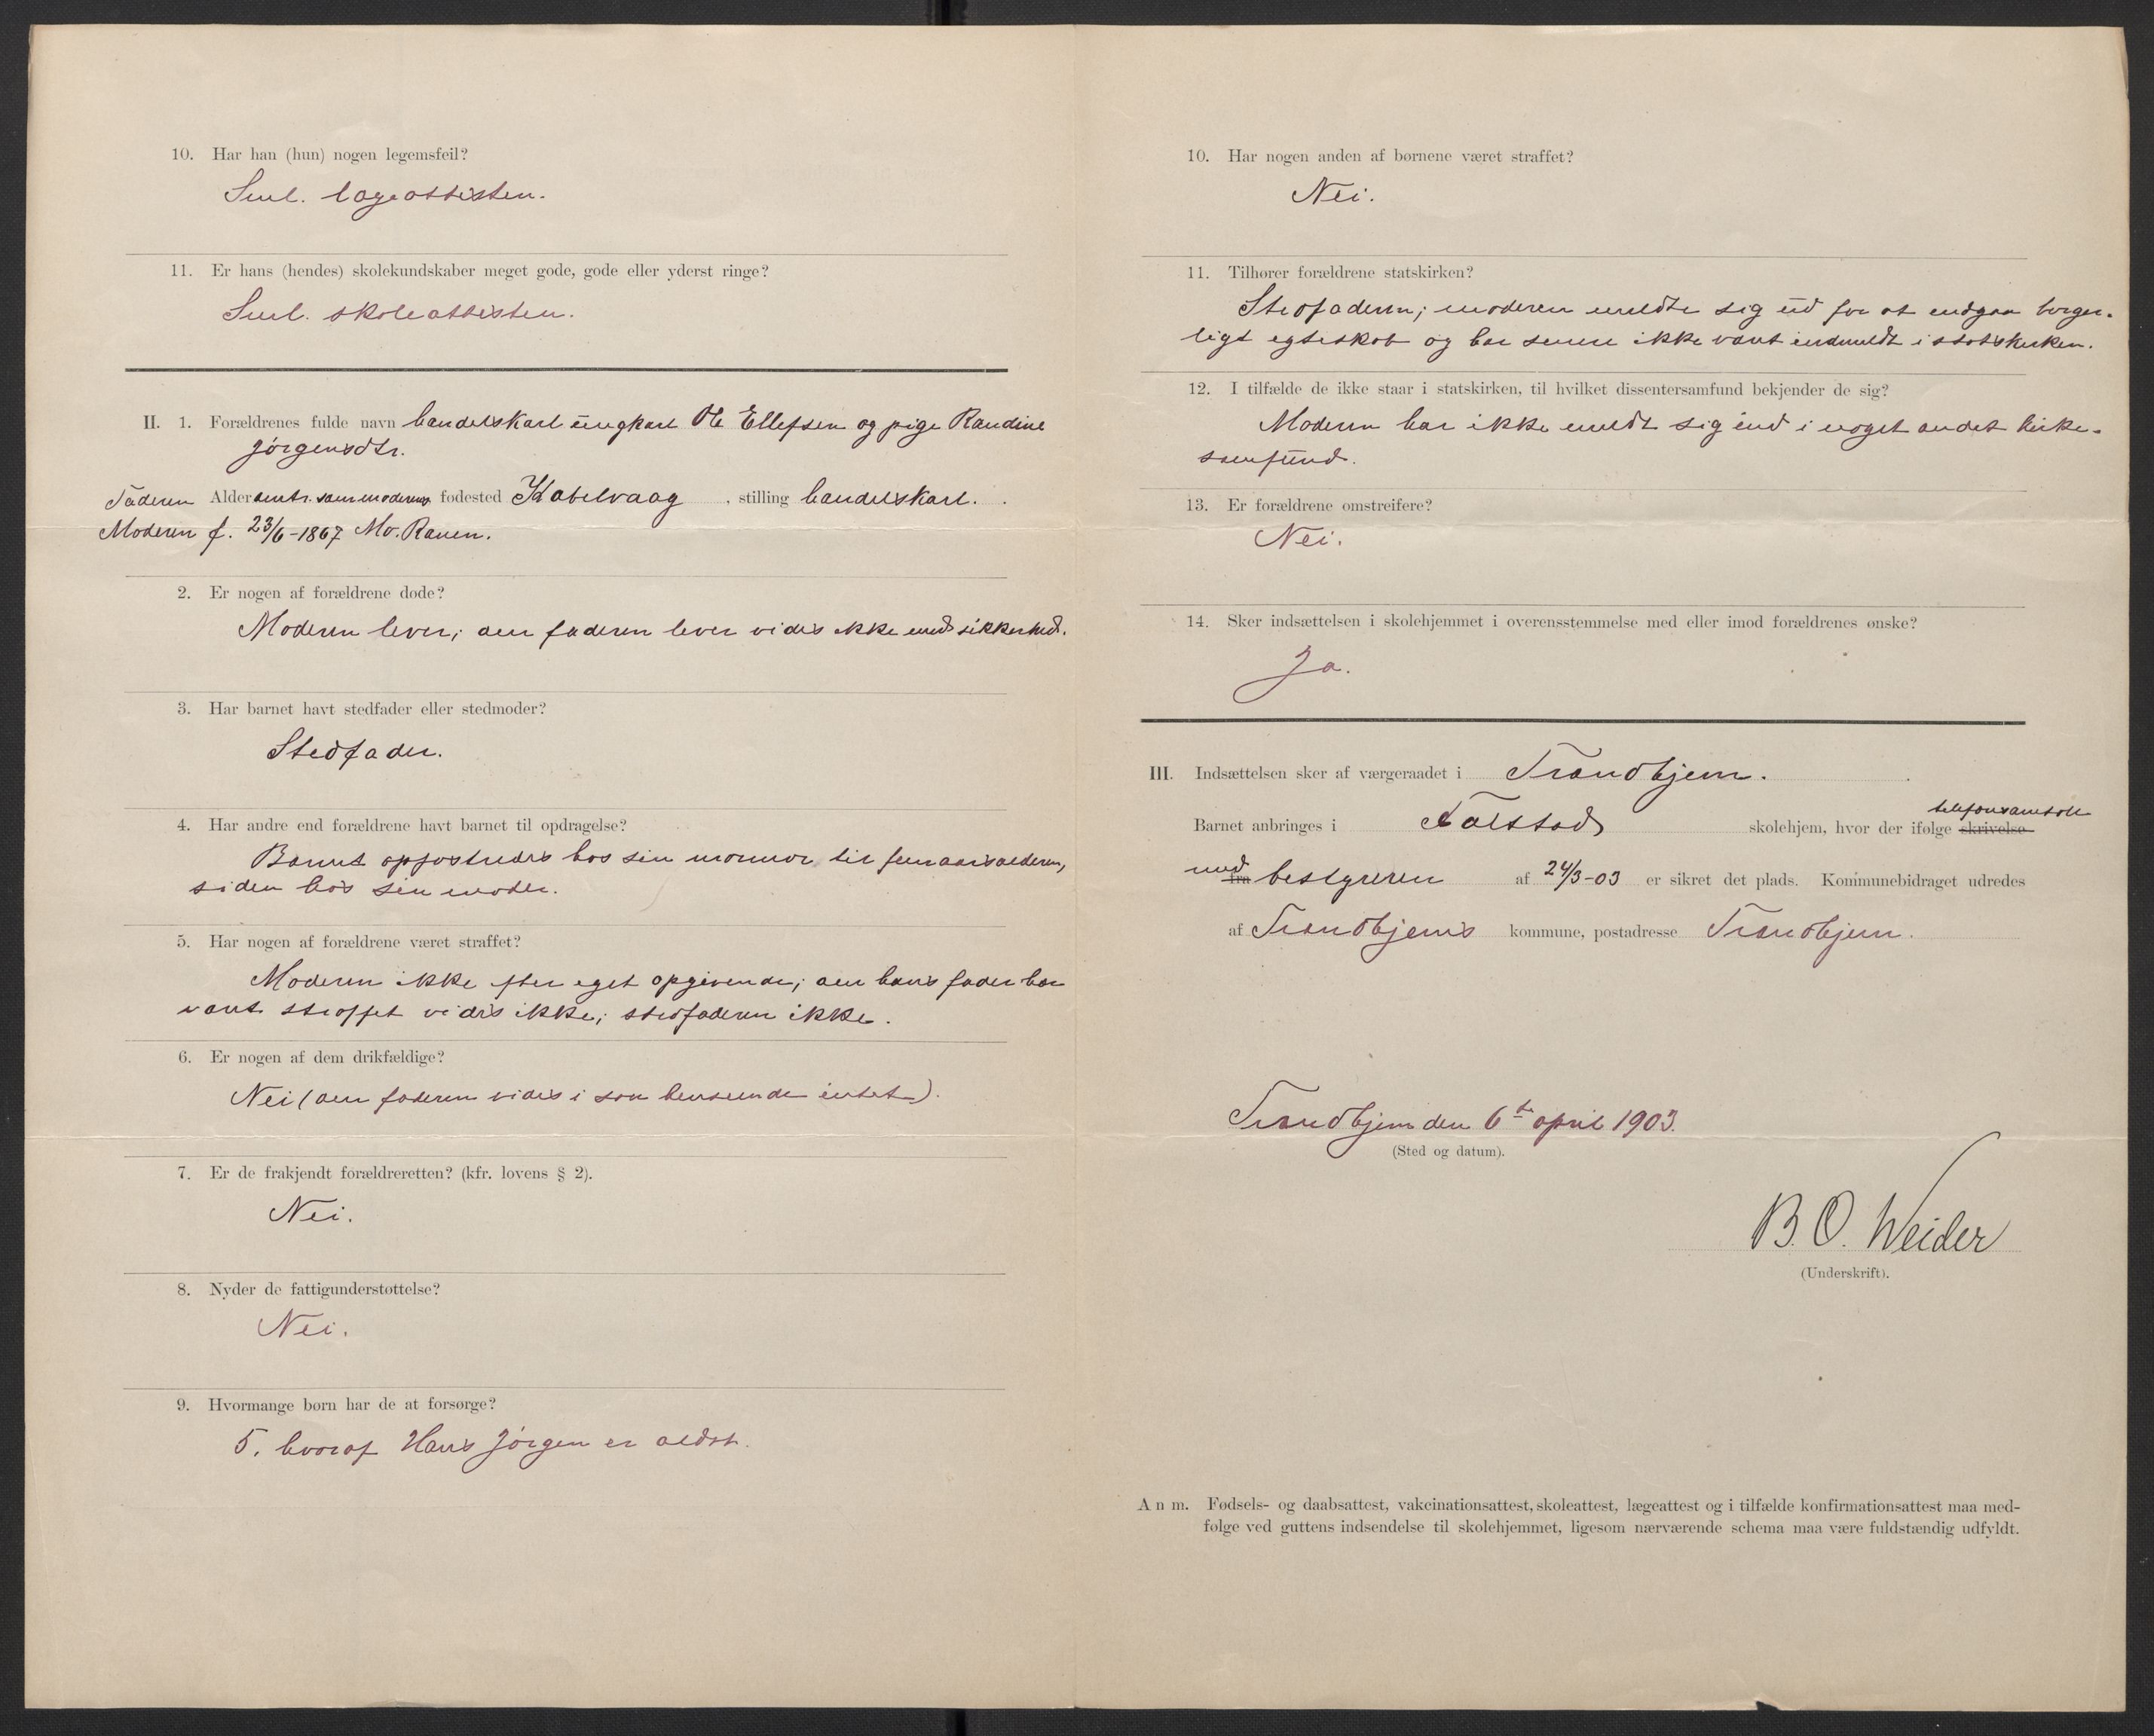 10. Har han (hun) nogen legemsfeil?
Sml. lægeattesten.
11. Er hans (hendes) skolekundskaber meget gode, gode eller yderst ringe?
Sml. skoleattesten.
II. 1. Forældrenes fulde navn handelskarl ungkarl Ole Ellefsen og pige Randine
Jørgensdtr.
Faderen Alder omtr. som moderens fødested Kabelvaag, stilling handelskarl.
Moderen f. 23/6-1867 Mo. Ranen.
2. Er nogen af forældrene døde?
Moderen lever; om faderen lever vides ikke med sikkerhed.
3. Har barnet havt stedfader eller stedmoder?
Stedfader.
4. Har andre end forældrene havt barnet til opdragelse?
Barnet opfostredes hos sin mormor til femaarsalderen,
siden hos sin moder.
5. Har nogen af forældrene været straffet?
Moderen ikke efter eget opgivende; om hans fader har
været straffet vides ikke; stedfaderen ikke.
6. Er nogen af dem drikfældige?
Nei (om faderen vides i saa henseende intet).
7. Er de frakjendt forældreretten? (kfr. lovens § 2).
Nei.
8. Nyder de fattigunderstøttelse?
Nei.
9. Hvormange børn har de at forsørge?
5, hvoraf Hans Jørgen er ældst.
10. Har nogen anden af børnene været straffet?
Nei.
11. Tilhører forældrene statskirken?
Stedfaderen; moderen meldte sig ud for at indgaa borger-
ligt egteskab og har senere ikke været indmeldt i statskirken.
12. I tilfælde de ikke staar i statskirken, til hvilket dissentersamfund bekjender de sig?
Moderen har ikke meldt sig ind i noget andet kirke-
samfund.
13. Er forældrene omstreifere?
Nei.
14. Sker indsættelsen i skolehjemmet i overensstemmelse med eller imod forældrenes ønske?
Ja.
III. Indsættelsen sker af værgeraadet i Trondhjem.
telefonsamtale
Barnet anbringes i Falstad skolehjem, hvor der ifølge skrivelse
med
fra bestyreren af 24/3-03 er sikret det plads. Kommunebidraget udredes
af Trondhjems kommune, postadresse Trondhjem.
Trondhjem den 6te april 1903.
(Sted og datum).
B. O. Weider
(Underskrift).
Anm. Fødsels- og daabsattest, vakcinationsattest, skoleattest, lægeattest og i tilfælde konfirmationsattest maa med-
følge ved guttens indsendelse til skolehjemmet, ligesom nærværende schema maa være fuldstændig udfyldt.